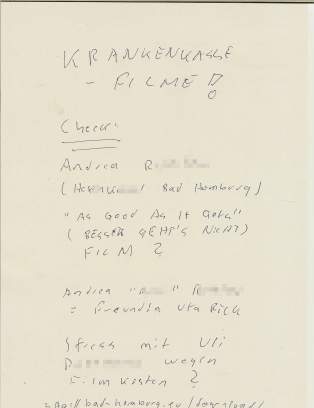 KRANKENKASSE
- FILME!
Check:
Andrea R
( Bad Homburg)
"As Good As It Gets"
(BESSER GEHT'S NICHT)
FILM ?
Andrea " " R
= Freundin Uta Rick
Stress mit Uli
wegen
Filmkosten ?
bad-homburg.eu/download/